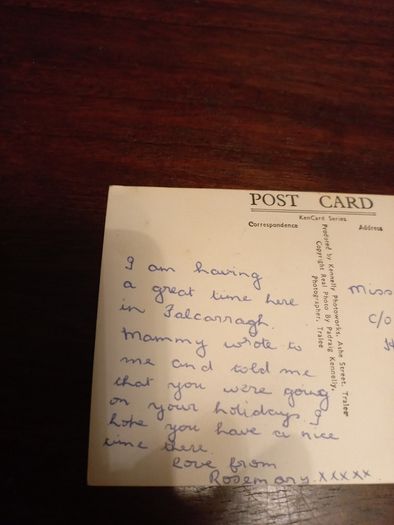 POST CARD
KenCard Series
Correspondence
Address
I am having
a great time here
in Falcarragh.
Mammy wrote to
me and told me
that you were going
on your holidays I
hope you have a nice
time there.
Love from
Rosemary xxxxx
Produced by Kennelly Photoworks, Ashe Street, Tralee
Copyright Real Photo By Padraig Kennelly,
Photographer, Tralee
Miss
C/o